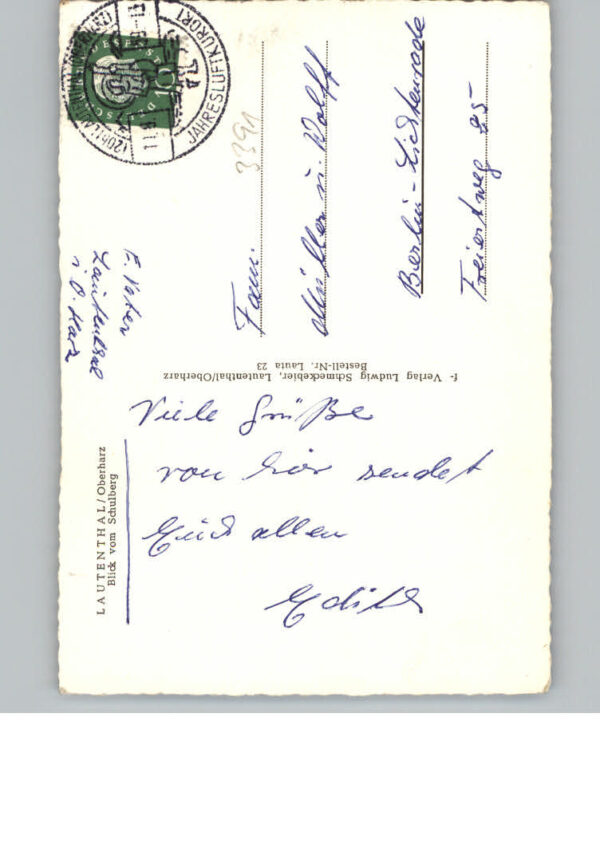 LAUTENTHAL/Oberharz
Blick vom Schulberg
Viele Grüße
von hier sendet
Euch allen
Edith
f- Verlag Ludwig Schmeckebier, Lautenthal/Oberharz
Bestell-Nr. Lauta 23
Lautenthal
i. O. Harz
JAHRESLUFTKURORT
10
3391
Fam.
Müller u. Wolff
Berlin-Lichtenrade
Freiertweg 25